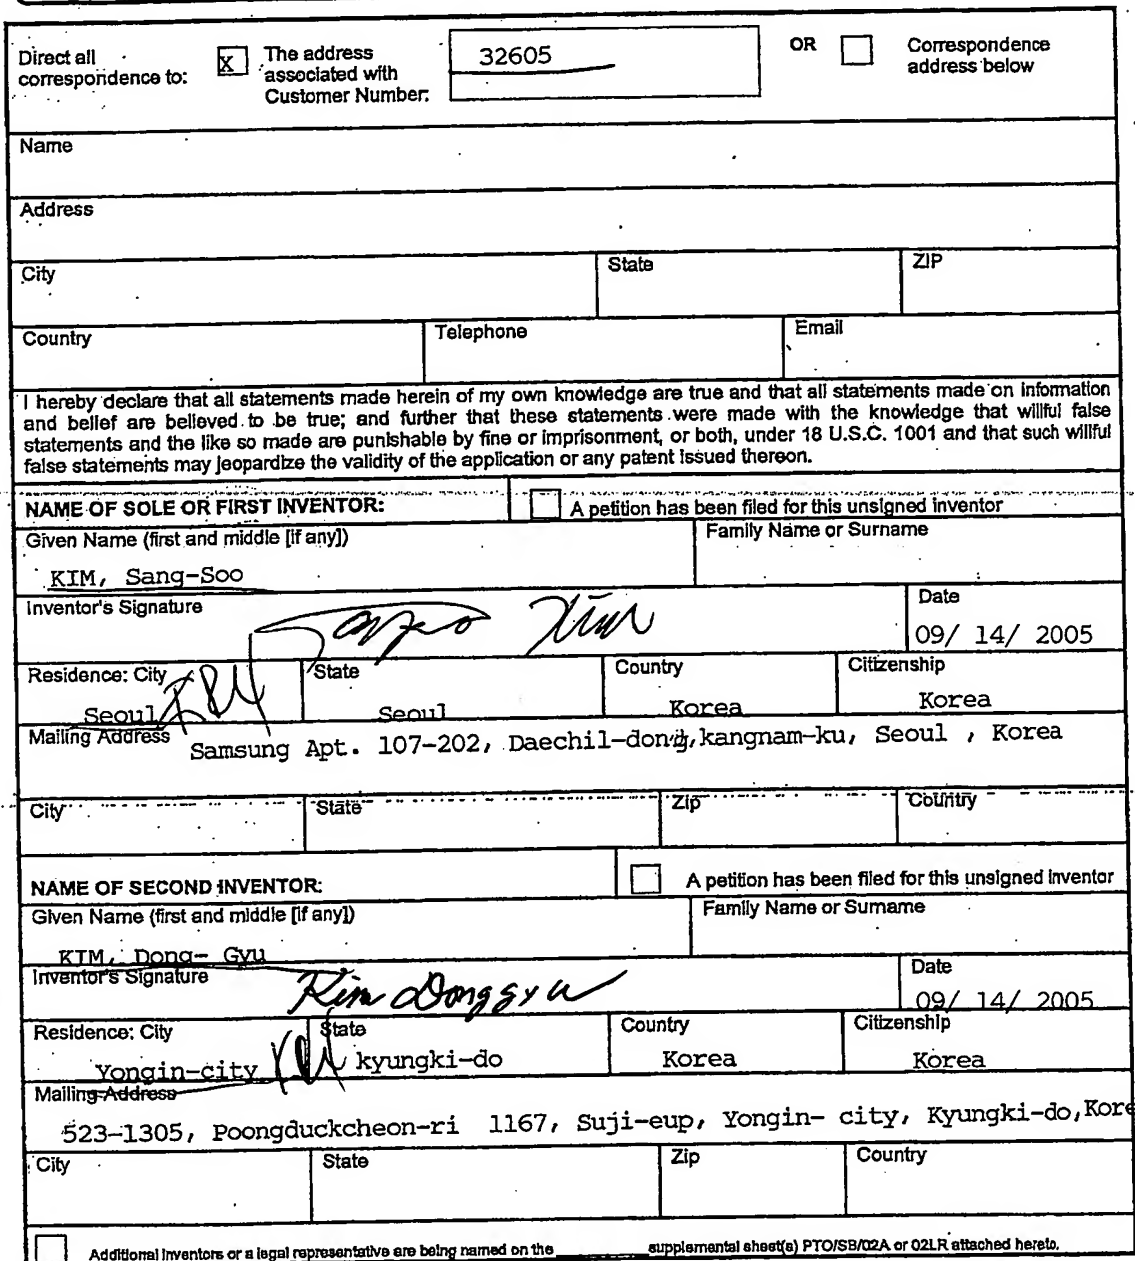 Direct all correspondence to: [X] The address associated with Customer Number: 32605 OR [ ] Correspondence address below
Name
Address
City State ZIP
Country Telephone Email
I hereby declare that all statements made herein of my own knowledge are true and that all statements made on information
and belief are believed to be true; and further that these statements were made with the knowledge that willful false
statements and the like so made are punishable by fine or imprisonment, or both, under 18 U.S.C. 1001 and that such willful
false statements may jeopardize the validity of the application or any patent issued thereon.
NAME OF SOLE OR FIRST INVENTOR: A petition has been filed for this unsigned inventor
Given Name (first and middle [if any]) Family Name or Surname
KIM, Sang-Soo
Inventor's Signature Date
Kim 09/ 14/ 2005
Residence: City State Country Citizenship
Seoul KRX Seoul Korea Korea
Mailing Address Samsung Apt. 107-202, Daechil-dong,kangnam-ku, Seoul , Korea
City State Zip Country
NAME OF SECOND INVENTOR: A petition has been filed for this unsigned inventor
Given Name (first and middle [if any]) Family Name or Surname
KIM, Dong- Gyu
Inventor's Signature Date
Kim Donggyu 09/ 14/ 2005
Residence: City State Country Citizenship
Yongin-city KRX kyungki-do Korea Korea
Mailing Address
523-1305, Poongduckcheon-ri 1167, Suji-eup, Yongin- city, Kyungki-do,Kore
City State Zip Country
Additional inventors or a legal representative are being named on the ______ supplemental sheet(s) PTO/SB/02A or 02LR attached hereto.